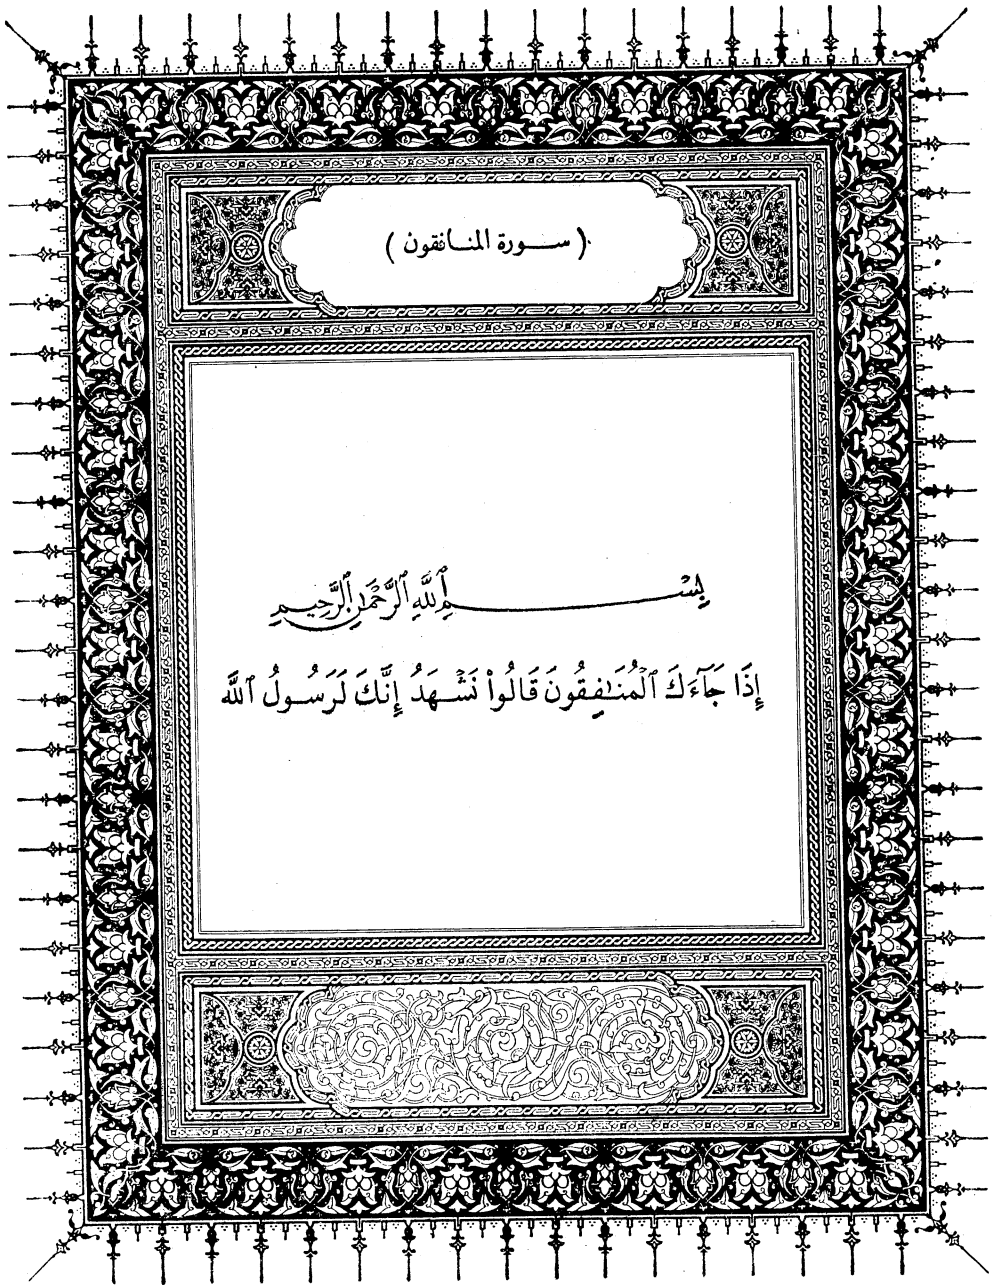 ( ســورة المنــافقون )
بِسْــــــــمِ ٱللَّهِ ٱلرَّحْمَٰنِ ٱلرَّحِيمِ
إِذَا جَآءَكَ ٱلْمُنَـٰفِقُونَ قَالُوا۟ نَشْهَدُ إِنَّكَ لَرَسُولُ ٱللَّه